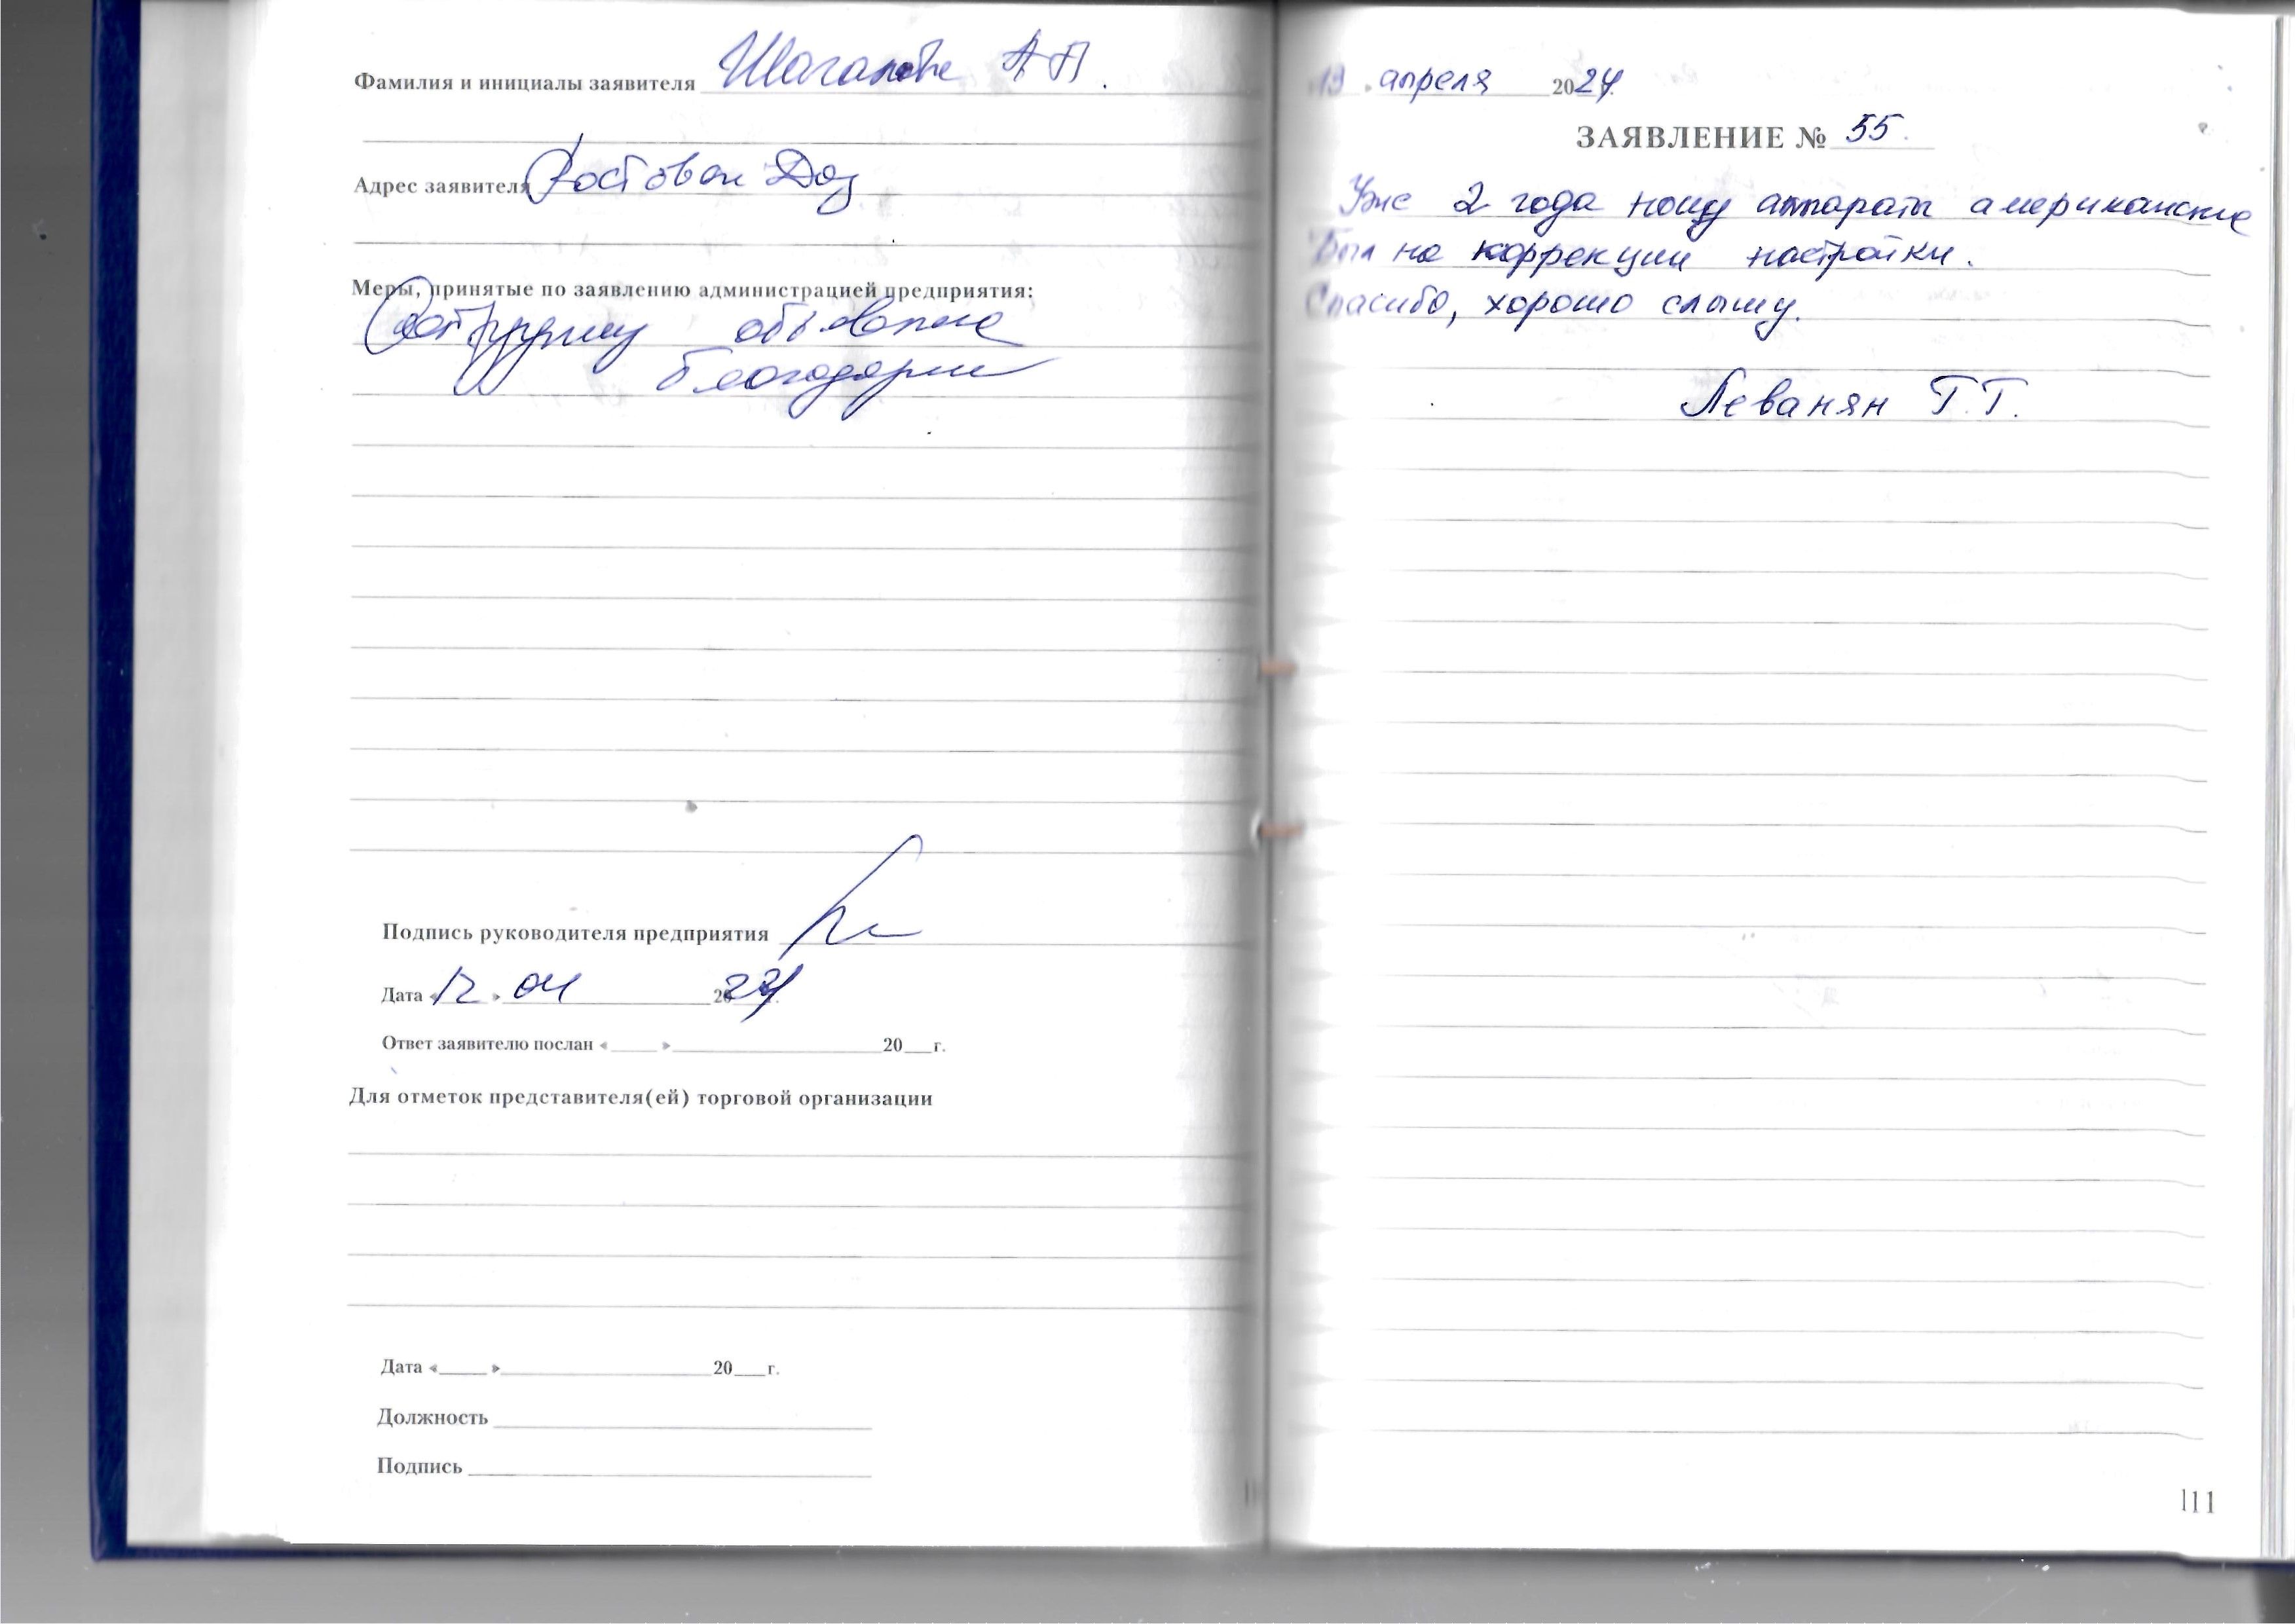 Фамилия и инициалы заявителя Шагалова А П.
Адрес заявителя Ростов на Дону
Меры, принятые по заявлению администрацией предприятия:
Сотруднику объявлена
благодарность
Подпись руководителя предприятия
Дата « 12 » 04 2024
Ответ заявителю послан « » 20 г.
Для отметок представителя(ей) торговой организации
Дата « » 20 г.
Должность
Подпись
19 » апреля 2024
ЗАЯВЛЕНИЕ № 55.
Уже 2 года ношу аппараты американские
Был на коррекции настройки.
Спасибо, хорошо слышу.
Леванян Г.Г.
111